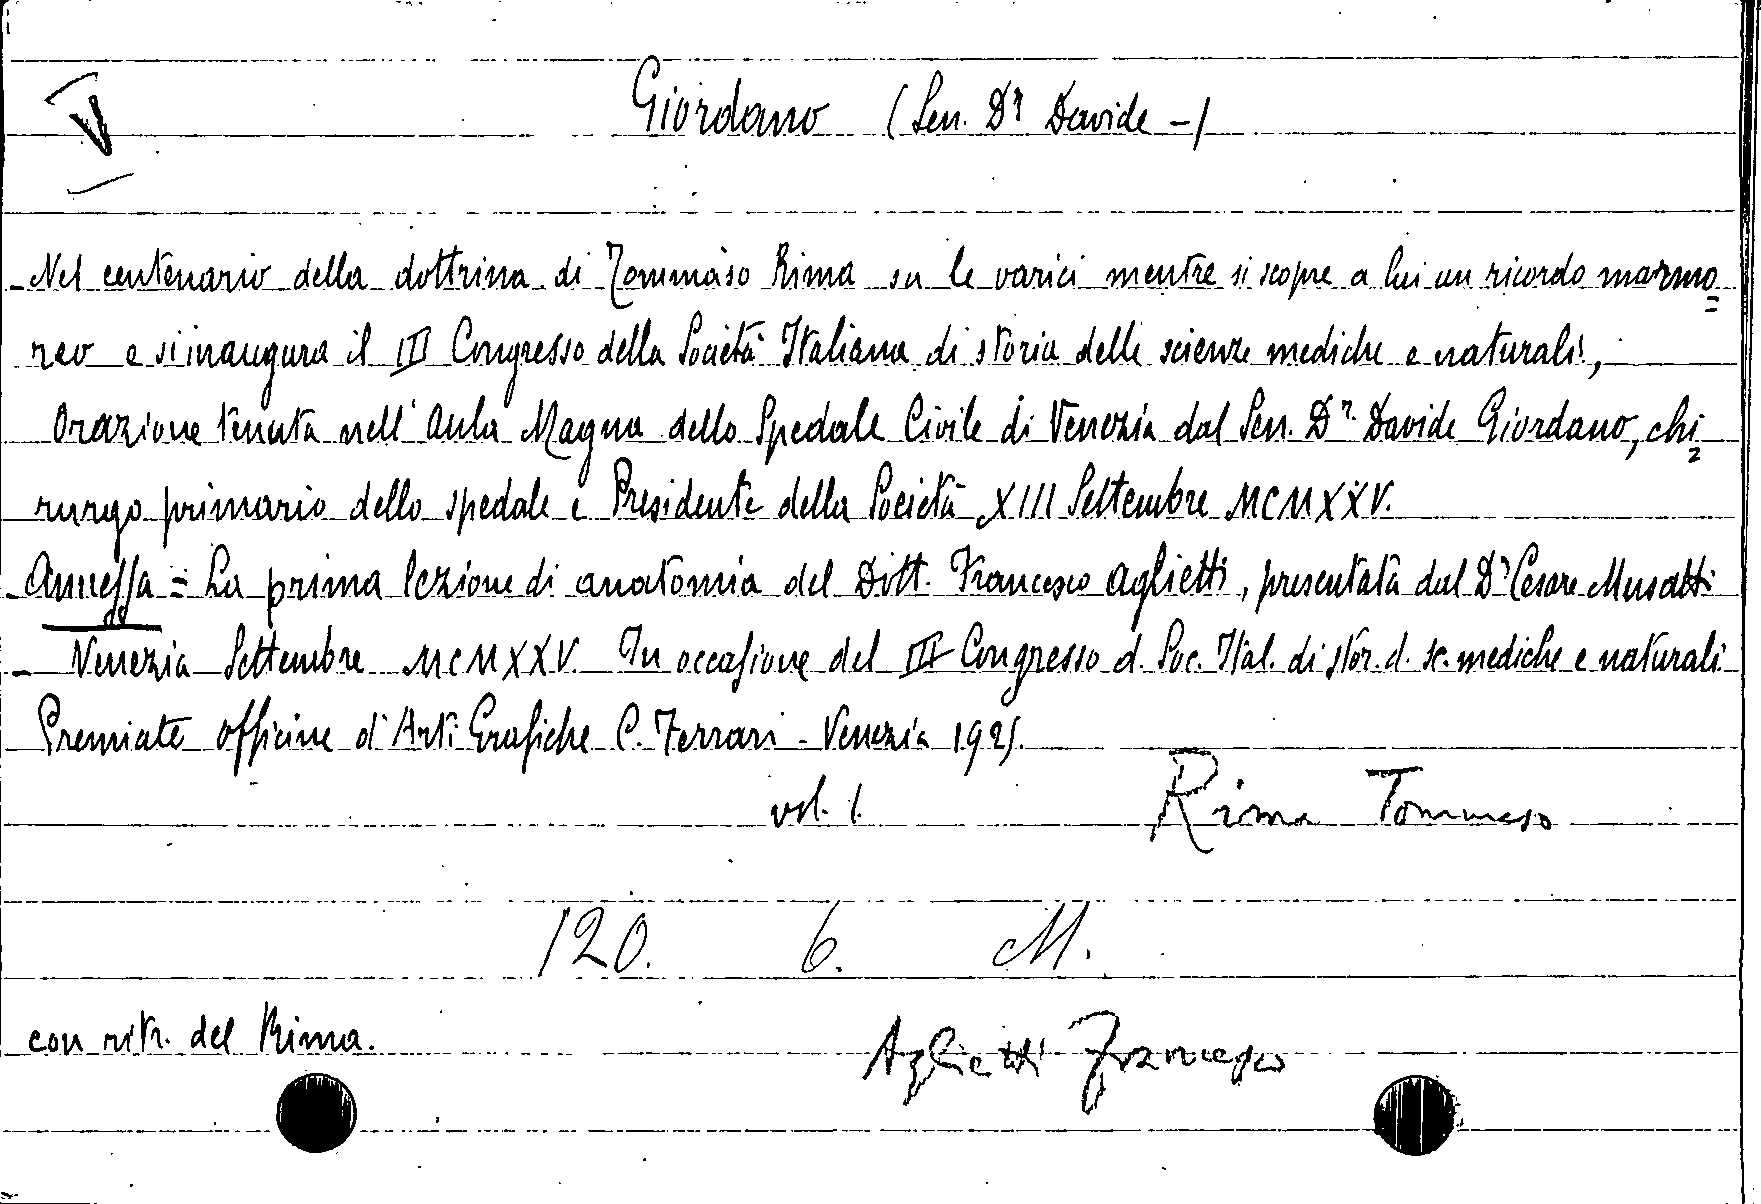 V
Giordano (Sen. Dr Davide -)
Nel centenario della dottrina di Tommaso Rima su le varici mentre si scopre a lui un ricordo marmo=
reo e si inaugura il III Congresso della Società Italiana di storia delle scienze mediche e naturali,
Orazione tenuta nell'Aula Magna dello Spedale Civile di Venezia dal Sen. Dr. Davide Giordano, chi=
rurgo primario dello spedale e Presidente della Società XIII Settembre MCMXXV.
Annessa = La prima lezione di anatomia del Dott. Francesco Aglietti, presentata dal Dr Cesare Musatti
- Venezia Settembre MCMXXV. In occasione del III Congresso d. Soc. Ital. di stor. d. sc. mediche e naturali
Premiate officine d'Arti Grafiche C. Ferrari - Venezia 1925.
vol. 1. Rima Tommaso
120. 6. M.
con ritr. del Rima.
Aglietti Francesco